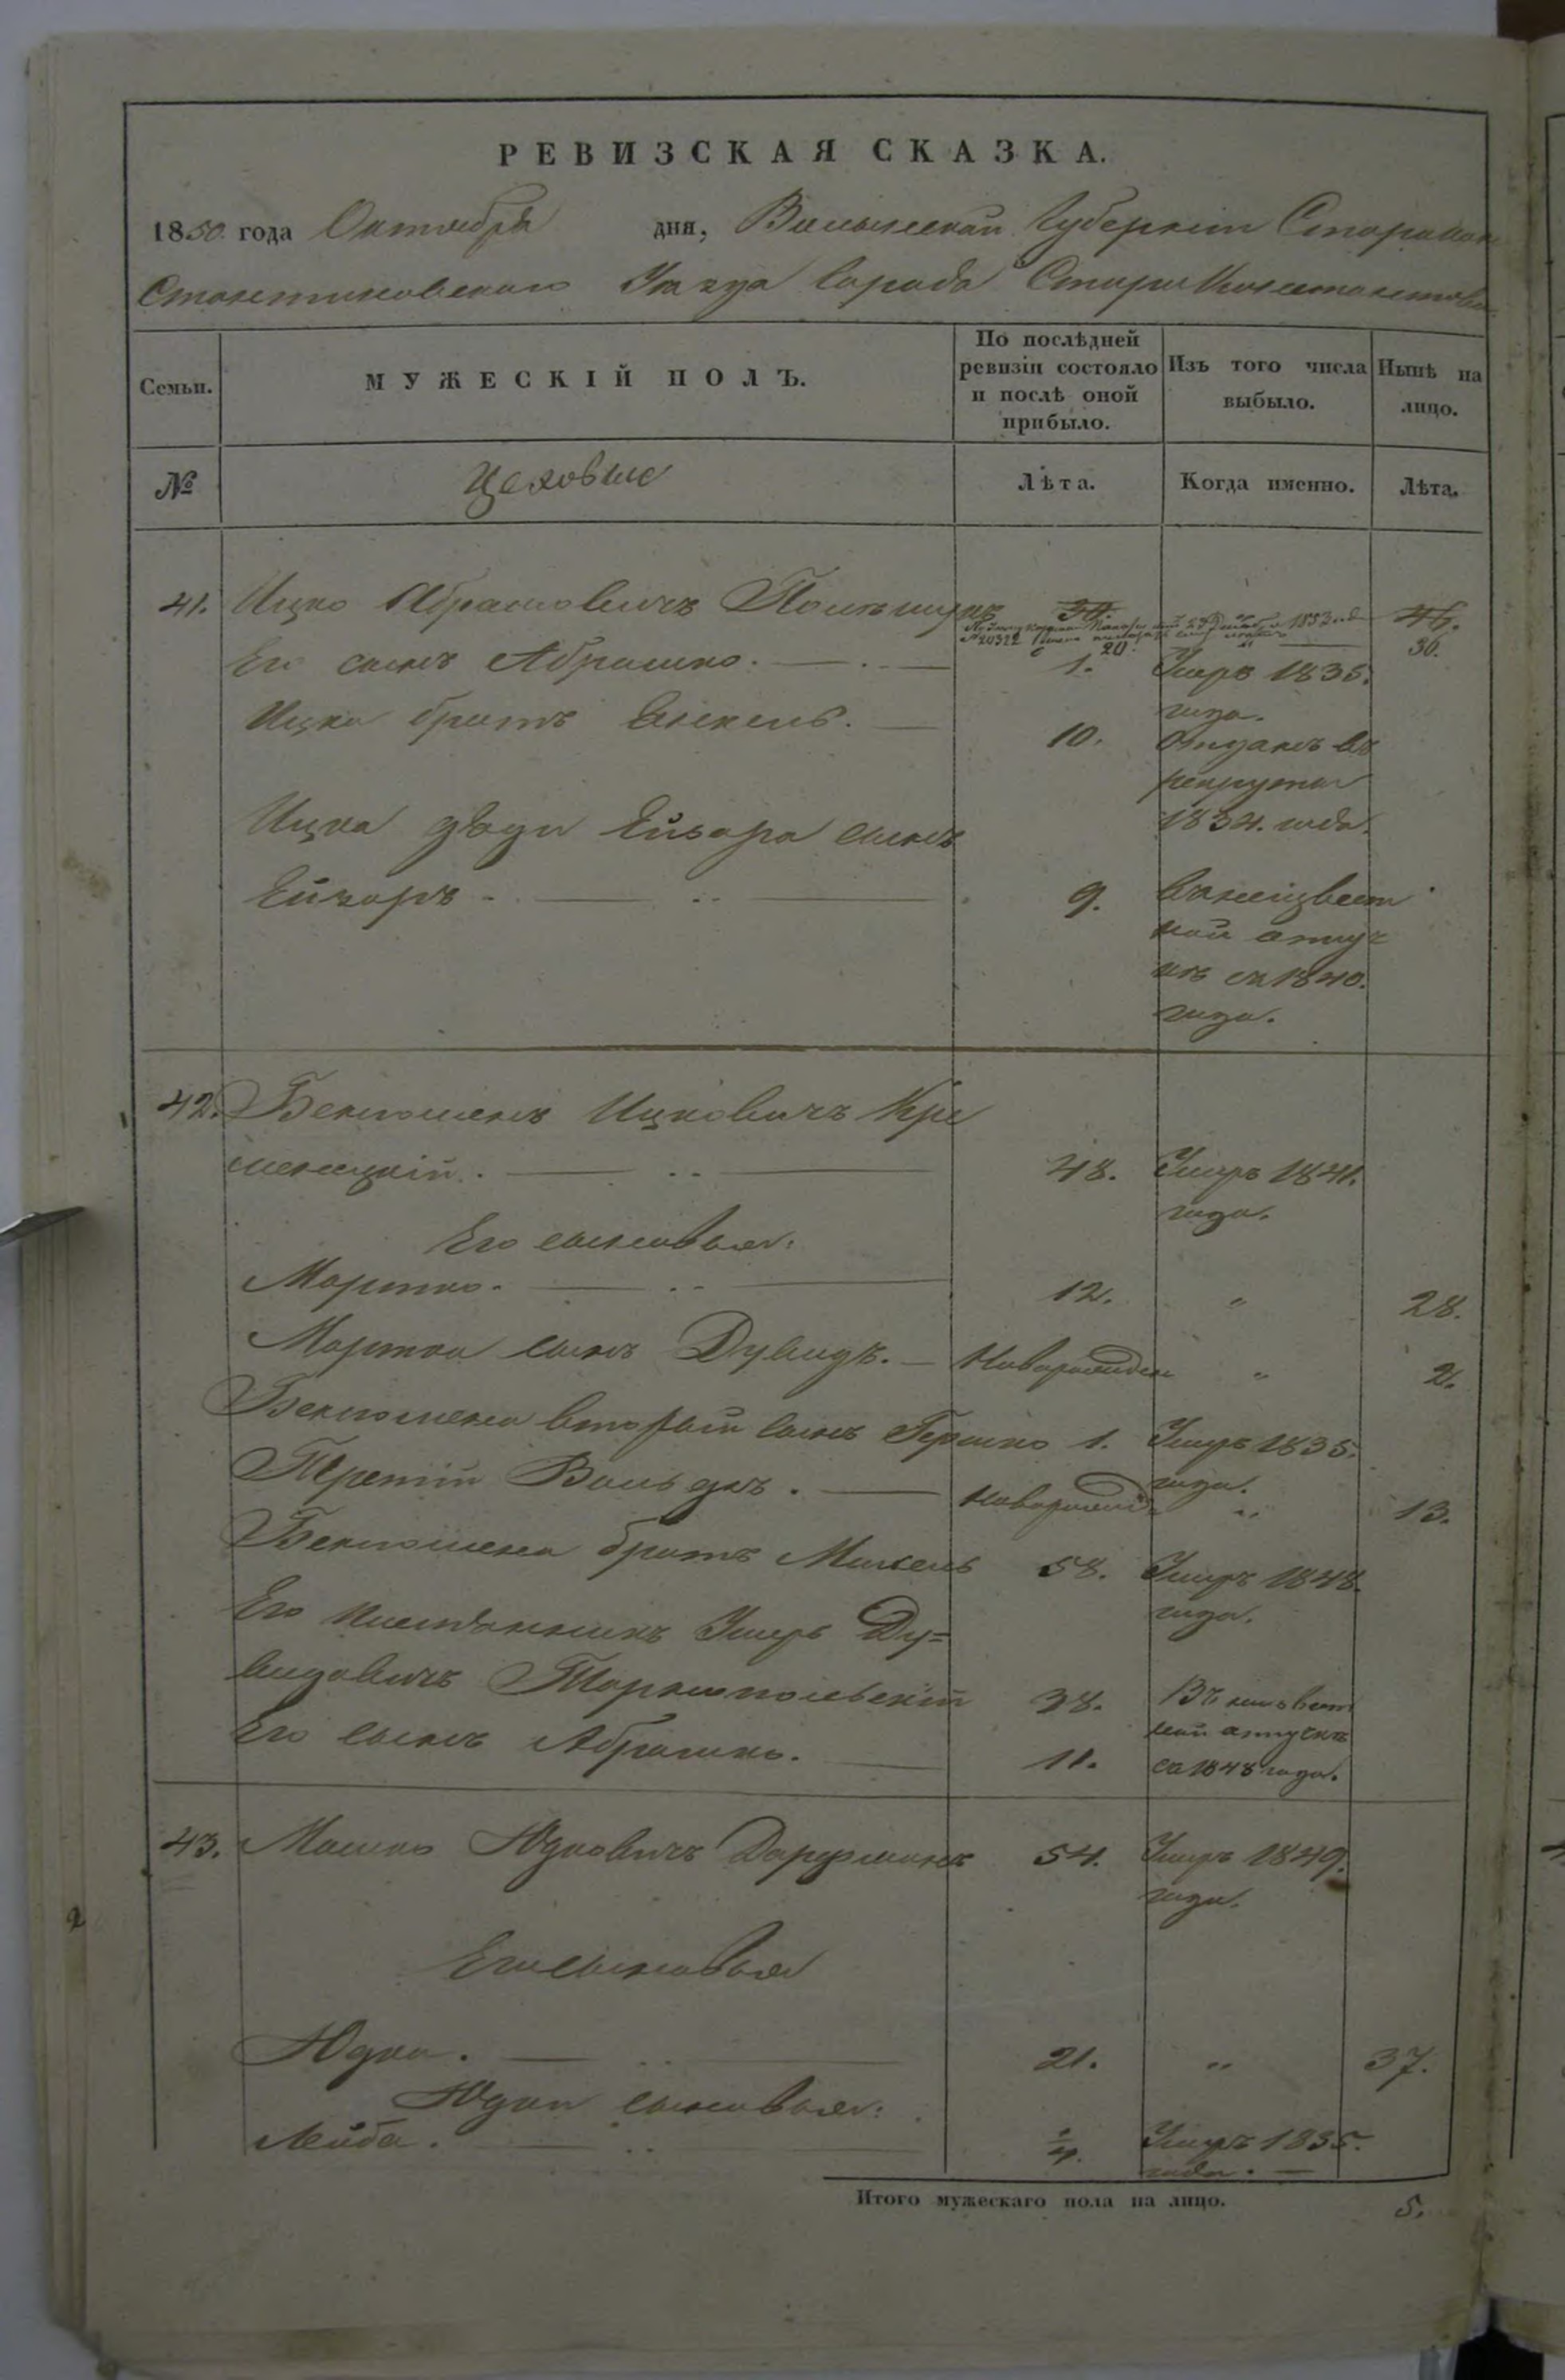 РЕВИЗСКАЯ СКАЗКА.
1850 года Октября дня, Волынской Губерніи Старокон
стантиновского Уезда города СтароКонстантинова
Семьи. МУЖЕСКІЙ ПОЛЪ. По послѣдней ревизіи состояло и послѣ оной прибыло. Изъ того числа выбыло. Нынѣ на лицо.
№ Цеховые Лѣта. Когда именно. Лѣта.
41. Ицко Абрамовичъ 30. 46.
1853 года
№ 20322 20. 36.
Его сынъ Абрашко. 1. Умръ 1835.
года.
Ицка братъ 10. отданъ въ
рекруты
1834. года.
Ицка дяди Ейзора сынъ
Ейзоръ. 9. въ неизвест
ной отлуч
кѣ съ 1840.
года.
42. Бенюменъ Ицковичъ Кре
менецкій. 48. Умръ 1841.
года.
Его сыновья:
Мортко. 12. " 28.
Мортка сынъ Дувидъ. Новорожден " 2.
Бенюмена вторый сынъ Гершко 1. Умръ 1835.
года.
Третій Вольдкъ. Новорожд " 13.
Бенюмена братъ Михель 58. Умръ 1848.
года.
Его племянникъ Ушеръ Ду=
видовичъ Тарнопольскій 38. Въ неизвест
ной отлучкѣ
Его сынъ Абрашко. 11. съ 1848 года.
43. Мошко Юдковичъ Дорфманъ 54. Умръ 1849.
года.
Его сыновья
Юдко. 21. " 37.
Юдки сыновья:
Лейба. 1/4. Умръ 1835.
года.
Итого мужескаго пола на лицо. 5.